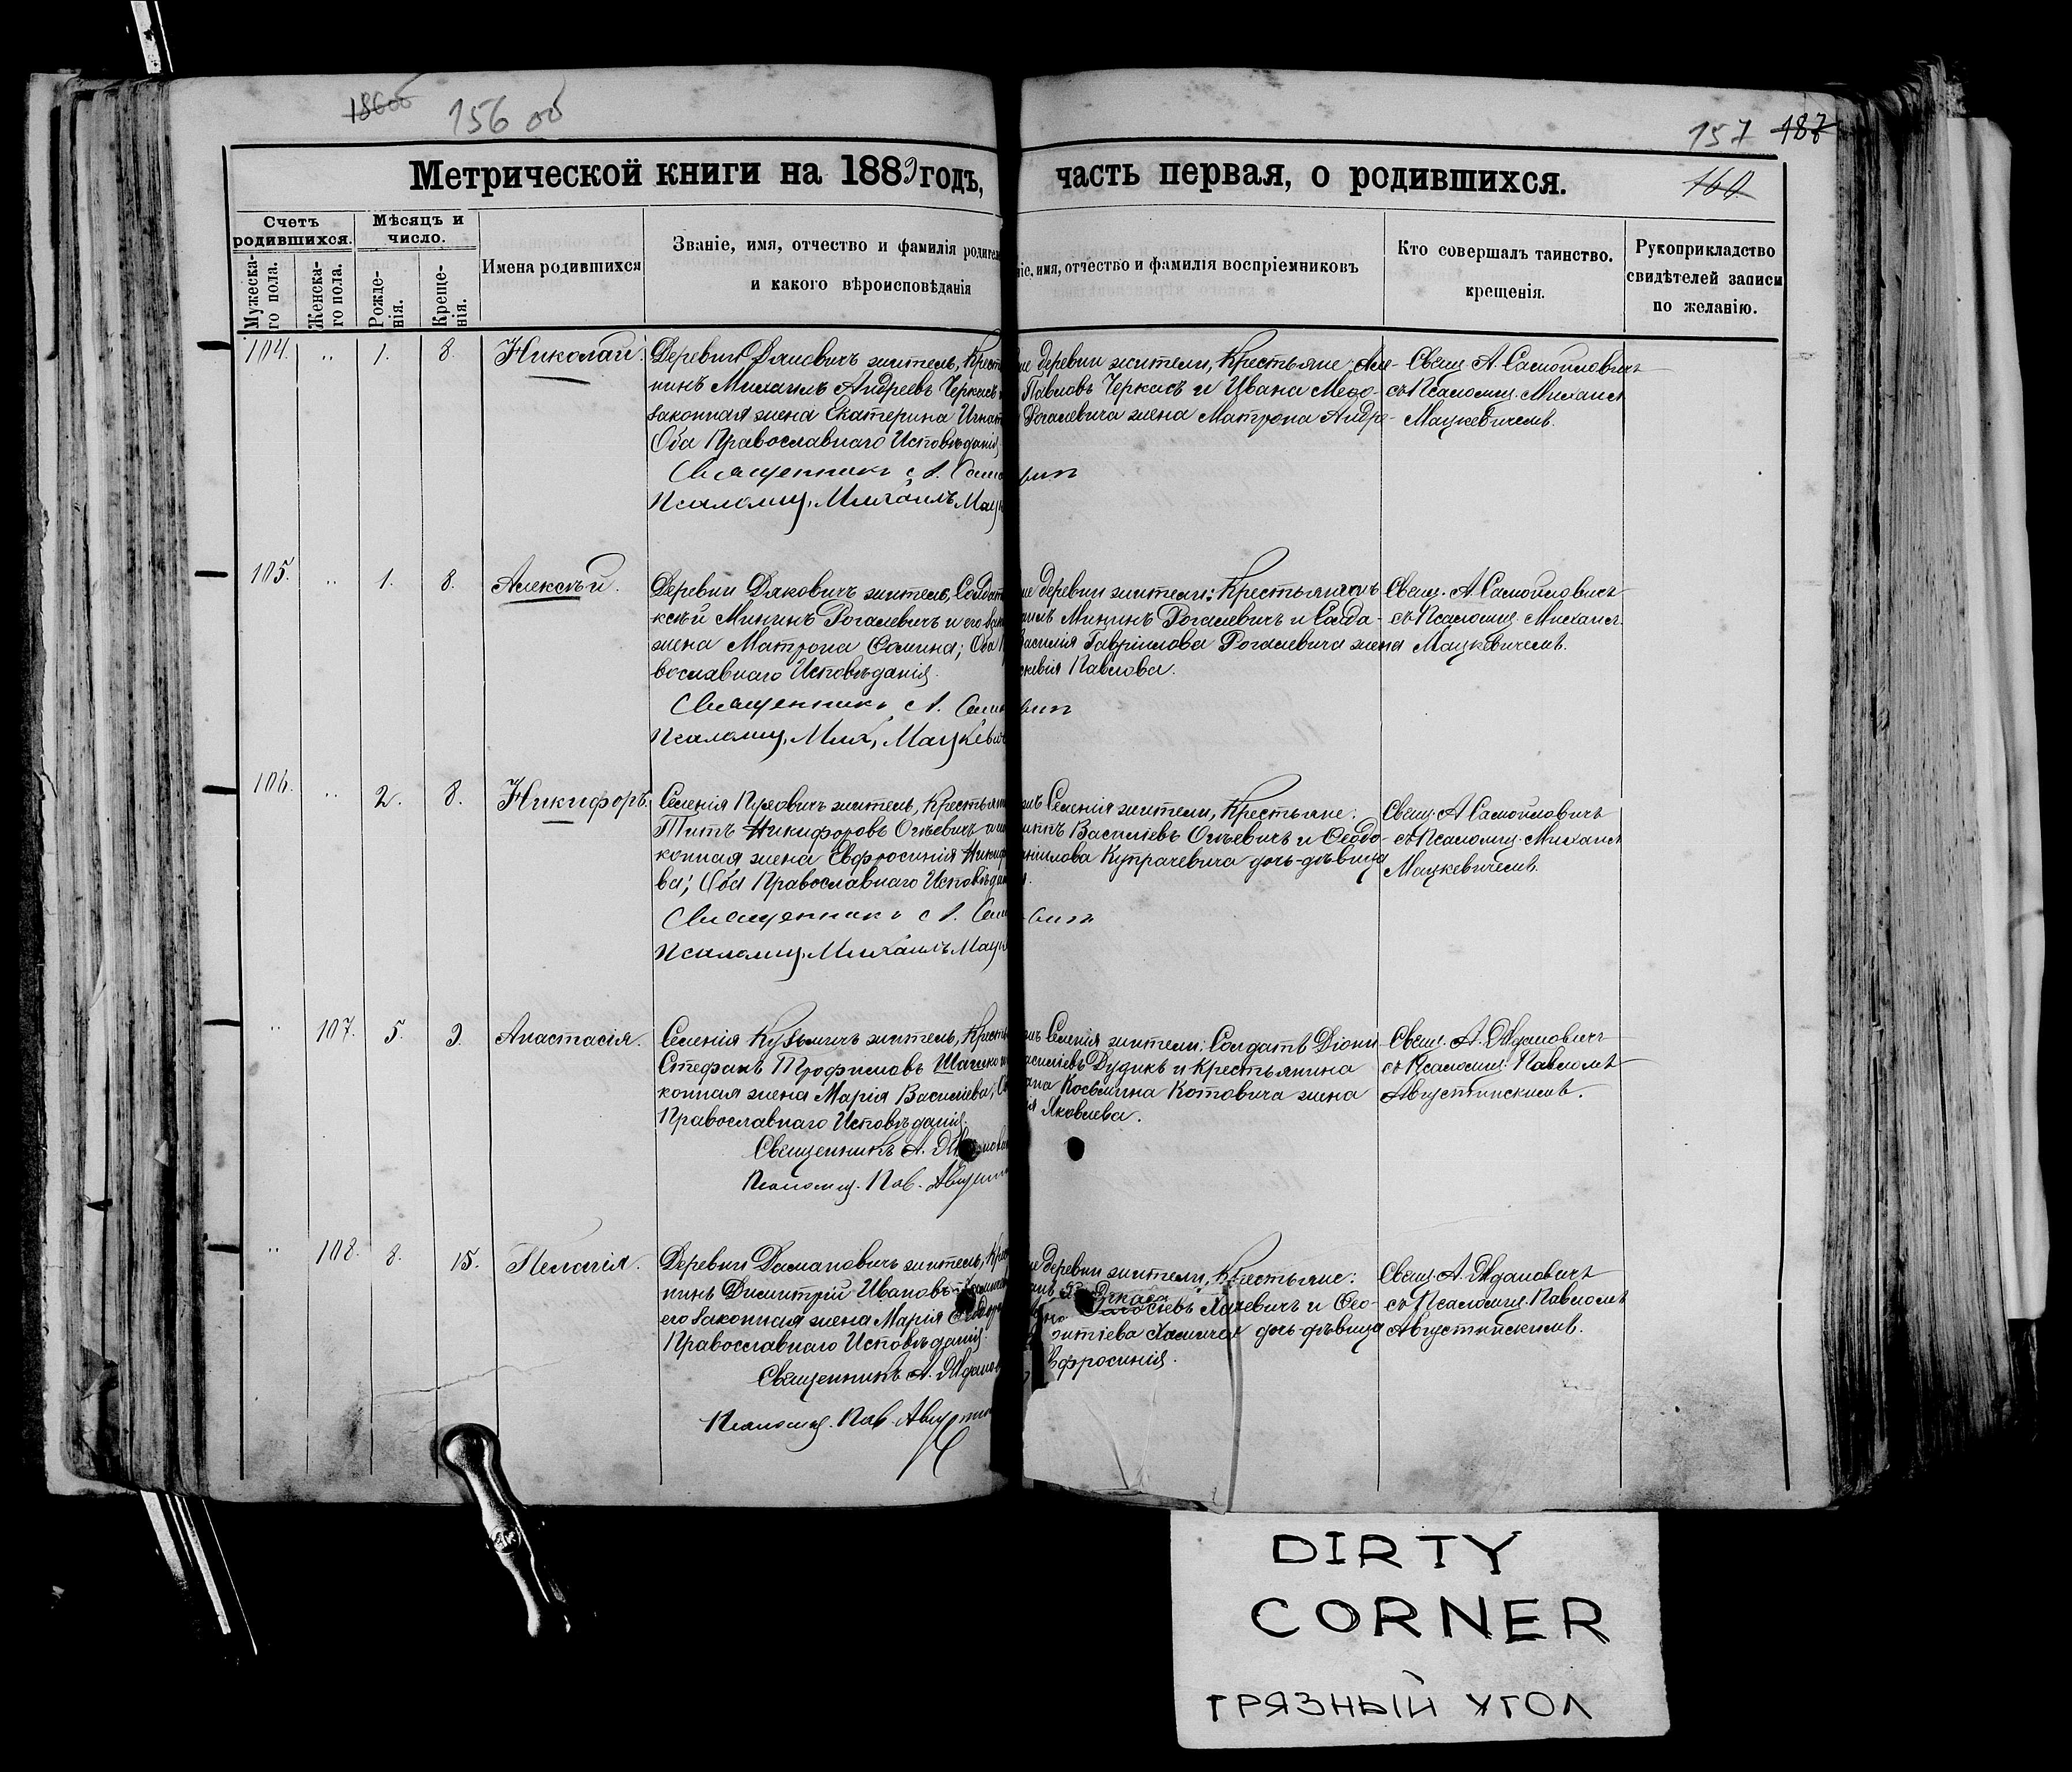 156 об
157 187
Метрической книги на 1889 годъ, часть первая, о родившихся.
160.
Счетъ родившихся.
Мѣсяцъ и число.
Мужеска-
го пола.
Женска-
го пола.
Рожде-
нія.
Креще-
нія.
Имена родившихся
Званіе, имя, отчество и фамилія родител
и какого вѣроисповѣданія
ніе, имя, отчество и фамилія воспріемниковъ
Кто совершалъ таинство.
крещенія.
Рукоприкладство
свидѣтелей записи
по желанію.
104. „ 1. 8. Николай.
Деревни житель, Крест
нинъ Михаилъ Андреевъ Черкасъ
законная жена Екатерина Игнат
Оба Православнаго Исповѣданія
Священникъ А. Само
Псаломщ. Михаилъ Мацк
же деревни жители, Крестьяне:
Павловъ Черкасъ и Ивана
Рогалевича жена Матрона Андре-
вичъ
Свящ. А. Самойловичъ
съ Псаломщ. Михаил
Мацкевичемъ.
105. „ 1. 8. Алексѣй.
Деревни Дяковичъ житель, Солдат
ксѣй Мининъ Рогалевичъ и его зак
жена Матрона Сомина; Оба П
вославнаго Исповѣданія.
Священникъ А. Само
Псаломщ. Мих. Мацкевич
же деревни жители: Крестьянинъ
аилъ Мининъ Рогалевичъ и Солда-
Василія Гавріилова Рогалевича жена
скевія Павлова.
вичъ
Свящ. А. Самойловичъ
съ Псаломщ. Михаил.
Мацкевичемъ.
106. „ 2. 8. Никифоръ.
Селенія житель, Крестьян
Титъ Никифоровъ Огіевичъ и
конная жена Евфросинія Никиф
ва; Оба Православнаго Исповѣдан
Священникъ А. Само
Псаломщ. Михаилъ Мацк
Селенія жители, Крестьяне:
Василіевъ Огіевичъ и Ѳеодо-
ніилова Купрачевича дочь-дѣвица
вичъ
Свящ. А. Самойловичъ
съ Псаломщ. Михаил
Мацкевичемъ.
„ 107. 5. 9. Анастасія.
Селенія Кузьмичъ житель, Кресть
Стефанъ Трофимовъ
конная жена Марія Василіева; Об
Православнаго Исповѣданія.
Священникъ А.
Псаломщ. Пав. Августин
Селенія жители: Солдатъ Діони-
асиліевъ Дудикъ и Крестьянина
Косьмина Котовича жена
ія Яковлева.
Свящ. А. Ждановичъ
съ Псаломщ. Павломъ
Августинскимъ.
„ 108. 8. 15. Пелагія.
Деревни Дамановичъ житель, Крес
нинъ Димитрій Ивановъ
его законная жена Марія
Православнаго Исповѣданія.
Священникъ А. Жданов
Псаломщ. Пав. Августин
же деревни жители, Крестьяне:
Лахевичъ и Ѳео-
дочь-дѣвица
Эфросинія.
Свящ. А. Ждановичъ
съ Псаломщ. Павломъ
Августинскимъ.
DIRTY
CORNER
ГРЯЗНЫЙ УГОЛ